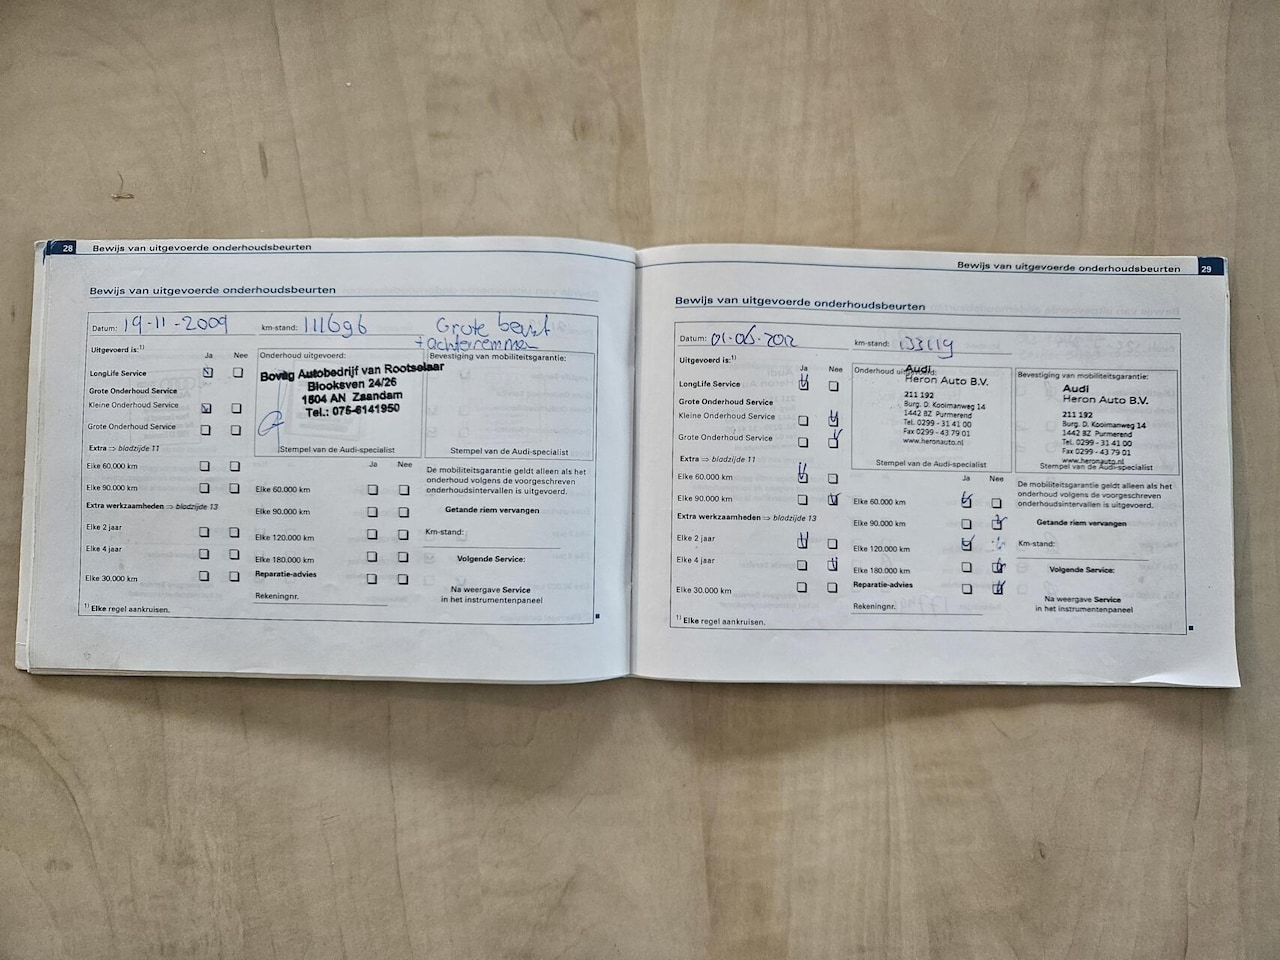 28 Bewijs van uitgevoerde onderhoudsbeurten
Bewijs van uitgevoerde onderhoudsbeurten
Datum: 19-11-2009 km-stand: 111696 Grote beurt
+ achterremmen
Uitgevoerd is:1)
Ja Nee
Onderhoud uitgevoerd:
Bevestiging van mobiliteitsgarantie:
LongLife Service
Grote Onderhoud Service
Kleine Onderhoud Service
Grote Onderhoud Service
Bovag Autobedrijf van Rootselaar
Blooksven 24/26
1504 AN Zaandam
Tel.: 075-6141950
Stempel van de Audi-specialist
Stempel van de Audi-specialist
Extra ⇒ bladzijde 11
Elke 60.000 km
Elke 90.000 km
Extra werkzaamheden ⇒ bladzijde 13
Elke 2 jaar
Elke 4 jaar
Elke 30.000 km
1) Elke regel aankruisen.
Ja Nee
Elke 60.000 km
Elke 90.000 km
Elke 120.000 km
Elke 180.000 km
Reparatie-advies
Rekeningnr.
De mobiliteitsgarantie geldt alleen als het
onderhoud volgens de voorgeschreven
onderhoudsintervallen is uitgevoerd.
Getande riem vervangen
Km-stand:
Volgende Service:
Na weergave Service
in het instrumentenpaneel
Bewijs van uitgevoerde onderhoudsbeurten 29
Bewijs van uitgevoerde onderhoudsbeurten
Datum: 01-06-2012 km-stand: 133119
Uitgevoerd is:1)
Ja Nee
Onderhoud uitgevoerd:
Bevestiging van mobiliteitsgarantie:
LongLife Service
Grote Onderhoud Service
Kleine Onderhoud Service
Grote Onderhoud Service
Audi
Heron Auto B.V.
211 192
Burg. D. Kooimanweg 14
1442 BZ Purmerend
Tel. 0299 - 31 41 00
Fax 0299 - 43 79 01
www.heronauto.nl
Stempel van de Audi-specialist
Audi
Heron Auto B.V.
211 192
Burg. D. Kooimanweg 14
1442 BZ Purmerend
Tel. 0299 - 31 41 00
Fax 0299 - 43 79 01
www.heronauto.nl
Stempel van de Audi-specialist
Extra ⇒ bladzijde 11
Elke 60.000 km
Elke 90.000 km
Extra werkzaamheden ⇒ bladzijde 13
Elke 2 jaar
Elke 4 jaar
Elke 30.000 km
1) Elke regel aankruisen.
Ja Nee
Elke 60.000 km
Elke 90.000 km
Elke 120.000 km
Elke 180.000 km
Reparatie-advies
Rekeningnr.
De mobiliteitsgarantie geldt alleen als het
onderhoud volgens de voorgeschreven
onderhoudsintervallen is uitgevoerd.
Getande riem vervangen
Km-stand:
Volgende Service:
Na weergave Service
in het instrumentenpaneel